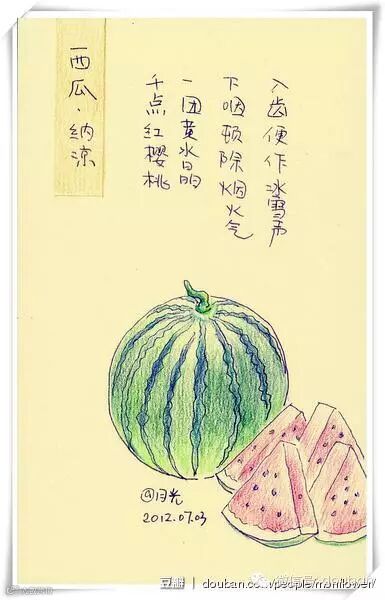 西瓜·纳凉
千点红樱桃
一团黄水晶
下咽顿除烟火气
入齿便作冰雪声
@月光
2012.07.03
豆瓣 douban.com/people/